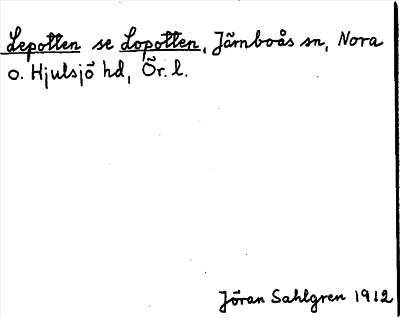 Lepotten se Lopotten, Järnboås sn, Nora
o. Hjulsjö hd, Ör. l.
Jöran Sahlgren 1912